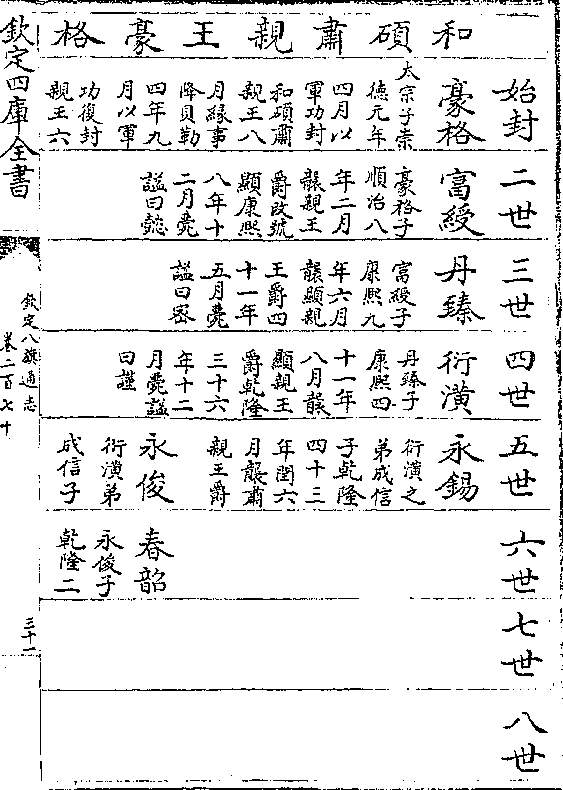 和碩肅親王豪格
始封
豪格
太宗子崇
德元年
四月以
軍功封
和碩肅
親王八
月緣事
降貝勒
四年九
月以軍
功復封
親王六
二世
富綬
豪格子
順治八
年二月
襲親王
爵改號
顯康熙
八年十
二月薨
諡曰懿
三世
丹臻
富綬子
康熙九
年六月
襲顯親
王爵四
十一年
五月薨
諡曰密
四世
衍潢
丹臻子
康熙四
十一年
八月襲
顯親王
爵乾隆
三十六
年十二
月薨諡
曰謹
五世
永錫
衍潢之
弟成信
子乾隆
四十三
年閏六
月襲肅
親王爵
永俊
衍潢弟
成信子
六世
春韶
永俊子
乾隆二
七世
八世
欽定四庫全書
欽定八旗通志
卷二百七十
三十一